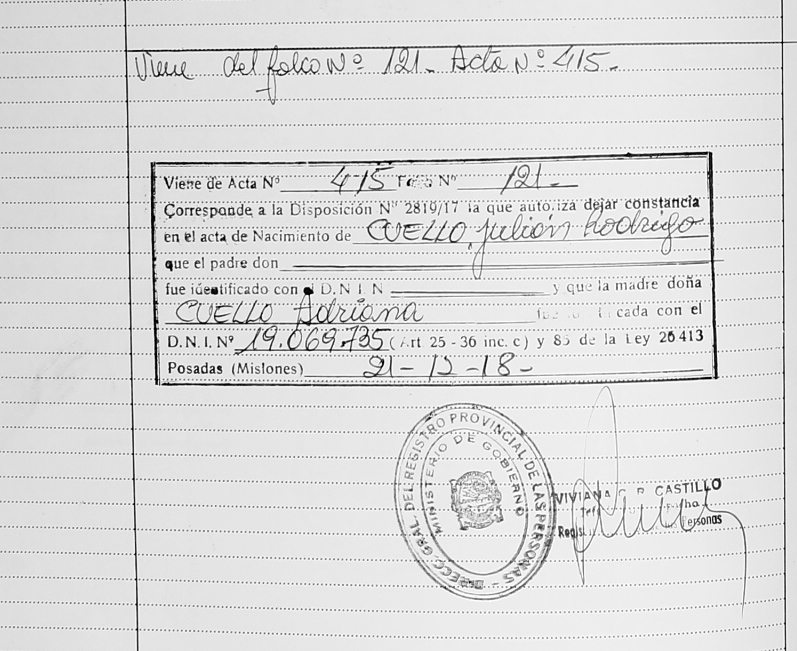 Viene del folio Nº 121 - Acta Nº 415 -
Viene de Acta Nº 415 Folio Nº 121 -
Corresponde a la Disposición Nº 2819/17 la que autoriza dejar constancia
en el acta de Nacimiento de CUELLO, Julián Rodrigo
que el padre don
fue identificado con D.N.I. N y que la madre doña
CUELLO Adriana cada con el
D.N.I. Nº 19.069.735 (Art 25 - 36 inc. c) y 85 de la Ley 26413
Posadas (Misiones) 21 - 12 - 18 -
DIRECC. GRAL. DEL REGISTRO PROVINCIAL DE LAS PERSONAS
MINISTERIO DE GOBIERNO
VIVIANA CASTILLO
Personas